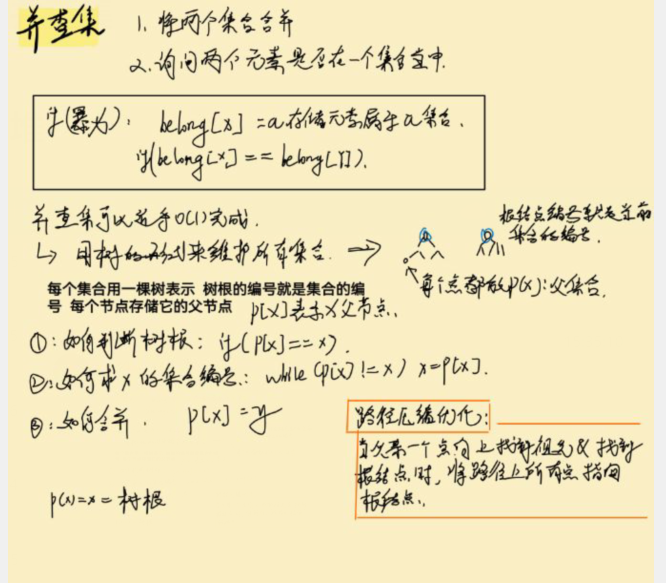 并查集
1. 将两个集合合并
2. 询问两个元素是否在一个集合当中.
if(暴力): belong[x] = a 存储元素属于a集合.
if(belong[x] == belong[y]).
并查集可以近乎O(1)完成.
↳ 用树的形式来维护所有集合. →
根结点编号就是当前
集合的编号.
每个点都存p(x):父集合.
每个集合用一棵树表示 树根的编号就是集合的编
号 每个节点存储它的父节点
p[x]表示x父节点.
①:如何判断树根: if(p[x]==x).
②:如何求x的集合编号: while(p(x) != x) x=p[x].
③:如何合并. p[x]=y
路径压缩优化:
当次某一个点向上找到祖先& 找到
根结点时, 将路径上所有点指向
根结点.
p(x)=x = 树根